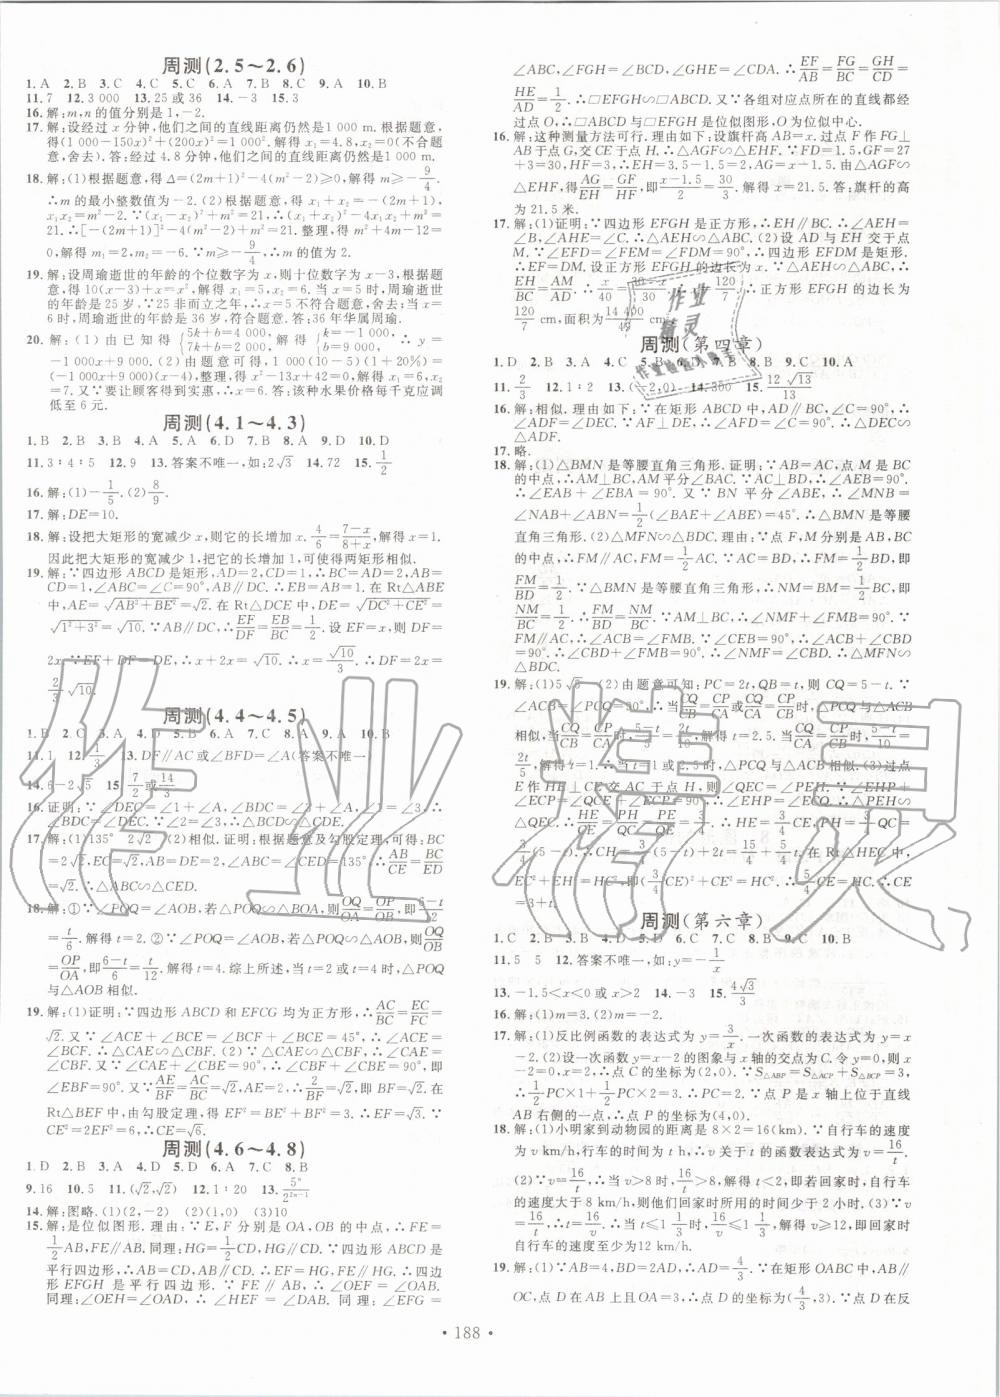 周测(2.5～2.6)
1. A 2. B 3. C 4. C 5. C 6. A 7. B 8. C 9. A 10. B
11. 7 12. 3 000 13. 25 或 36 14. －3 15. 3
16. 解:m,n 的值分别是 1,－2.
17. 解:设经过 x 分钟,他们之间的直线距离仍然是 1 000 m. 根据题意,
得(1 000－150x)²＋(200x)²＝1 000². 解得 x₁＝4.8,x₂＝0(不合题
意,舍去). 答:经过 4.8 分钟,他们之间的直线距离仍然是 1 000 m.
18. 解:(1)根据题意,得 Δ＝(2m＋1)²－4(m²－2)≥0,解得 m≥－9/4.
∴m 的最小整数值为－2. (2)根据题意,得 x₁＋x₂＝－(2m＋1),
x₁x₂＝m²－2,∵(x₁－x₂)²＋m²＝21,∴(x₁＋x₂)²－4x₁x₂＋m²＝
21. ∴[－(2m＋1)]²－4(m²－2)＋m²＝21. 整理,得 m²＋4m－12＝
0,解得 m₁＝2,m₂＝－6. ∵m≥－9/4,∴m 的值为 2.
19. 解:设周瑜逝世的年龄的个位数字为 x,则十位数字为 x－3,根据题
意,得 10(x－3)＋x＝x². 解得 x₁＝5,x₂＝6. 当 x＝5 时,周瑜逝世
的年龄是 25 岁,∵25 非而立之年,∴x＝5 不符合题意,舍去;当 x＝
6 时,周瑜逝世的年龄为 36 岁,符合题意. 答:36 年华属周瑜.
20. 解:(1) 由 已 知 得 {5k＋b＝4 000, 7k＋b＝2 000. 解 得 {k＝－1 000, b＝9 000. ∴ y ＝
－1 000x＋9 000. (2) 由 题 意 可 得,1 000(10－5)(1＋20%)＝
(－1 000x＋9 000)(x－4),整理,得 x²－13x＋42＝0. 解得 x₁＝6,x₂
＝7. ∵要让顾客得到实惠,∴x＝6. 答:这种水果价格每千克应调
低至 6 元.
周测(4.1～4.3)
1. B 2. B 3. B 4. A 5. A 6. D 7. B 8. D 9. D 10. D
11. 3∶4∶5 12. 9 13. 答案不唯一,如:2√3 14. 72 15. 1/2
16. 解:(1)－1/5. (2)8/9.
17. 解:DE＝10.
18. 解:设把大矩形的宽减少 x,则它的长增加 x. 4/6＝(7－x)/(8＋x),解得 x＝1.
因此把大矩形的宽减少 1,把它的长增加 1,可使得两矩形相似.
19. 解:∵四边形 ABCD 是矩形,AD＝2,CD＝1,∴BC＝AD＝2,AB＝
CD＝1,∠ABC＝∠C＝90°,AB∥DC. ∴EB＝AB＝1. 在 Rt△ABE
中,AE＝√(AB²＋BE²)＝√2. 在 Rt△DCE 中,DE＝√(DC²＋CE²)＝
√(1²＋3²)＝√10. ∵AB∥DC,∴EF/DF＝EB/BC＝1/2. 设 EF＝x,则 DF＝
2x. ∵EF＋DF＝DE,∴x＋2x＝√10. ∴x＝√10/3. ∴DF＝2x＝
2/3√10.
周测(4.4～4.5)
1. B 2. C 3. D 4. A 5. A 6. A 7. C 8. A 9. A 10. B
11. 1 13. DF∥AC 或∠BFD＝∠A(答案不唯一)
14. 6－2√5 15. 7/2或14/3
16. 证明:∵∠DEC＝∠1＋∠A,∠BDC＝∠2＋∠A,∠1＝∠2,∴
∠BDC＝∠DEC. ∵∠2＝∠3,∴△BDC∽△CDE.
17. 解:(1)135° 2√2 (2)相似. 证明:根据题意及勾股定理,可得:BC
＝2√2,EC＝√2,DE＝2,∠ABC＝∠CED＝135°,∴AB/CE＝BC/ED
＝√2. ∴△ABC∽△CED.
18. 解:①∵∠POQ＝∠AOB,若△POQ∽△BOA,则OQ/OA＝OP/OB,即(6－t)/12＝
t/6. 解得 t＝2. ②∵∠POQ＝∠AOB,若△POQ∽△AOB,则OQ/OB＝
OP/OA,即(6－t)/6＝t/12. 解得 t＝4. 综上所述,当 t＝2 或 t＝4 时,△POQ
与△AOB 相似.
19. 解:(1)证明:∵四边形 ABCD 和 EFCG 均为正方形,∴AC/BC＝EC/FC＝
√2. 又∵∠ACE＋∠BCE＝∠BCF＋∠BCE＝45°,∴∠ACE＝
∠BCF. ∴△CAE∽△CBF. (2)∵△CAE∽△CBF,∴∠CAE＝
∠CBF. 又∵∠CAE＋∠CBE＝90°,∴∠CBF＋∠CBE＝90°,即
∠EBF＝90°. 又∵AE/BF＝AC/BC＝√2,AE＝2,∴2/BF＝√2,即 BF＝√2. 在
Rt△BEF 中,由勾股定理,得 EF²＝BE²＋BF²＝3. ∴EF＝√3. ∵
CE²＝2EF²＝6,∴CE＝√6.
周测(4.6～4.8)
1. D 2. B 3. A 4. D 5. D 6. A 7. C 8. B
9. 16 10. 5 11. (√2,√2) 12. 1∶20 13. 5ⁿ/2²ⁿ⁻¹
14. 解:图略. (1)(2,－2) (2)(1,0) (3)10
15. 解:是位似图形. 理由:∵E,F 分别是 OA,OB 的中点,∴FE＝
1/2AB,FE∥AB. 同理:HG＝1/2CD,HG∥CD. ∵四边形 ABCD 是
平行四边形,∴AB∥CD,AB＝CD. ∴EF∥HG,FE＝HG. ∴四边
形 EFGH 是 平 行 四 边 形. ∵ FE ∥ AB,∴ ∠OEF ＝ ∠OAB.
同理:∠OEH＝∠OAD, ∴ ∠HEF＝∠DAB. 同理:∠EFG＝
∠ABC,∠FGH＝∠BCD,∠GHE＝∠CDA. ∴EF/AB＝FG/BC＝GH/CD＝
HE/AD＝1/2. ∴□EFGH∽□ABCD. 又∵各组对应点所在的直线都经
过点 O,∴□ABCD 与□EFGH 是位似图形,O 为位似中心.
16. 解:这种测量方法可行. 理由如下:设旗杆高 AB＝x. 过点 F 作 FG⊥
AB 于点 G,交 CE 于点 H,∴△AGF∽△EHF. ∵FD＝1.5,GF＝27
＋3＝30,HF＝3. ∴EH＝3.5－1.5＝2,AG＝x－1.5. 由△AGF∽
△EHF,得AG/EH＝GF/HF,即(x－1.5)/2＝30/3. 解得 x＝21.5. 答:旗杆的高
为 21.5 米.
17. 解:(1)证明:∵四边形 EFGH 是正方形,∴EH∥BC. ∴∠AEH＝
∠B,∠AHE＝∠C. ∴△AEH∽△ABC. (2)设 AD 与 EH 交于点
M. ∵∠EFD＝∠FEM＝∠FDM＝90°,∴四边形 EFDM 是矩形.
∴EF＝DM. 设正方形 EFGH 的边长为 x. ∵△AEH∽△ABC,∴
EH/BC＝AM/AD. ∴x/40＝(30－x)/30. ∴x＝120/7. ∴正方形 EFGH 的边长为
120/7 cm,面积为14 400/49 cm².
周测(第四章)
1. D 2. B 3. A 4. C 5. B 6. D 7. B 8. B 9. C 10. A
11. 2/3 12. 1∶2 13. (－2,0) 14. 350 15. 12√13/13
16. 解:相似. 理由如下:在矩形 ABCD 中,AD∥BC,∠C＝90°,∴
∠ADF＝∠DEC. ∵AF⊥DE,∴∠AFD＝∠C＝90°. ∴△DEC∽
△ADF.
17. 略.
18. 解:(1)△BMN 是等腰直角三角形. 证明:∵AB＝AC,点 M 是 BC
的中点,∴AM⊥BC,AM 平分∠BAC. ∵AC⊥BD,∴∠AEB＝90°.
∴∠EAB＋∠EBA＝90°. 又∵BN 平分∠ABE,∴∠MNB＝
∠NAB＋∠ABN＝1/2(∠BAE＋∠ABE)＝45°. ∴△BMN 是等腰
直角三角形. (2)△MFN∽△BDC. 理由:∵点 F,M 分别是 AB,BC
的中点,∴FM∥AC,FM＝1/2AC. ∵AC＝BD,∴FM＝1/2BD,即
FM/BD＝1/2. ∵△BMN 是等腰直角三角形,∴NM＝BM＝1/2BC,即
NM/BC＝1/2. ∴FM/BD＝NM/BC. ∵AM⊥BC,∴∠NMF＋∠FMB＝90°.
∵FM∥AC,∴∠ACB＝∠FMB. ∵∠CEB＝90°,∴∠ACB＋∠CBD
＝90°. ∴∠CBD＋∠FMB＝90°. ∴∠NMF＝∠CBD. ∴△MFN∽
△BDC.
19. 解:(1)5√5 (2)由题意可知:PC＝2t,QB＝t,则 QC＝5－t. ∵
∠ACB＝∠PCQ＝90°,∴当CQ/CA＝CP/CB或CQ/CB＝CP/CA时,△PCQ 与△ABC
解得 t＝2.5,当
解得 t＝1. ∴当 t＝1 或 2.5 时,△PCQ 与△ACB 相似. (3)过点
E 作 HE⊥CE 交 AC 于点 H,则∠QEC＝∠PEH. ∵∠EHP＋
∠ECP＝∠QCE＋∠ECP＝90°,∴∠EHP＝∠ECQ. ∴△PEH∽
△QEC. ∴HE/CE＝PH/QC＝PE/QE
在 Rt△HEC 中,
EC²＋EH²＝HC²,
周测(第六章)
1. C 2. B 3. B 4. D 5. D 6. C 7. C 8. B 9. C 10. B
11. 5 5 12. 答案不唯一,如:y＝－1/x
13. －1.5＜x＜0 或 x＞2 14. －3 15. 4√3/3
16. 解:(1)m＝3. (2)m＝1.
17. 解:(1)反比例函数的表达式为 y＝3/x. 一次函数的表达式为 y＝x
－2. (2)设一次函数 y＝x－2 的图象与 x 轴的交点为 C. 令 y＝0,则 x
－2＝0,x＝2,∴点 C 的坐标为(2,0). ∵S△ABP＝S△ACP＋S△BCP＝3,
∴1/2PC×1＋1/2PC×3＝3. ∴PC＝2. ∵点 P 是 x 轴上位于直线
AB 右侧的一点,∴点 P 的坐标为(4,0).
18. 解:(1)小明家到动物园的距离是 8×2＝16(km). ∵自行车的速度
为 v km/h,所用的时间为 t h,∴v 关于 t 的函数表达式为 v＝16/t.
(2)∵v＝16/t,∴t＝16/v. ∴当 v＞8 时,t＜2,即如果回家时,自行车
的速度大于 8 km/h,则他们回家时所用的时间少于 2 小时. (3)∵v
＝16/t,∴t＝16/v. ∴当 t≤1 1/3时,16/v≤1 1/3时,解得 v≥12,即回家时
自行车的速度至少为12 km/h.
19. 解:(1)∵AB＝4,BD＝2AD,∴AD＝4/3. ∵在矩形 OABC 中,AB∥
OC,∴点 D 在 AB 上且 OA＝3,∴点 D 的坐标为(4/3,3). ∵点 D 在反
• 188 •
作业精灵